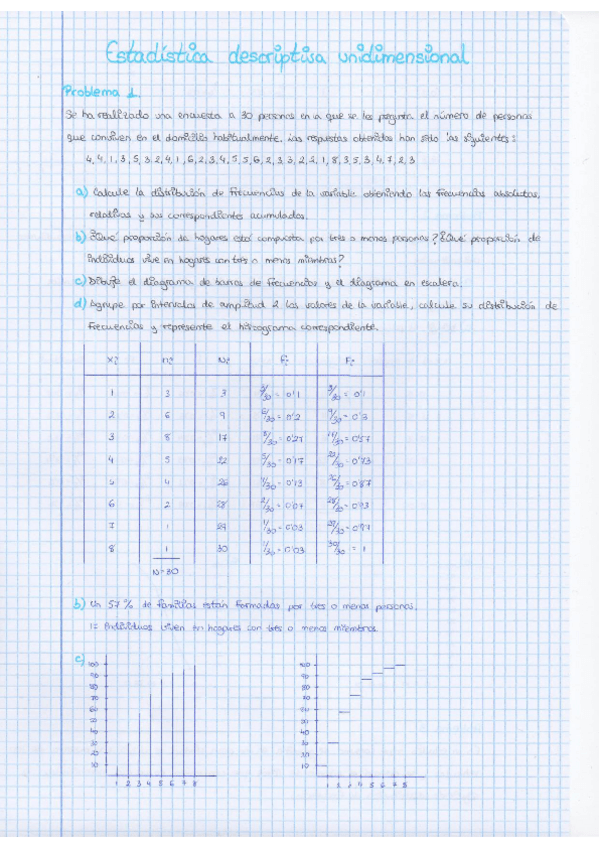 Estadística descriptiva unidimensional
Problema 1.
Se ha realizado una encuesta a 30 personas en la que se les pregunta el número de personas
que conviven en el domicilio habitualmente. Las respuestas obtenidas han sido las siguientes:
4, 4, 1, 3, 5, 3, 2, 4, 1, 6, 2, 3, 4, 5, 5, 6, 2, 3, 3, 2, 2, 1, 8, 3, 5, 3, 4, 7, 2, 3
a) Calcule la distribución de frecuencias de la variable obteniendo las frecuencias absolutas,
relativas y sus correspondientes acumuladas.
b) ¿Qué proporción de hogares está compuesta por tres o menos personas? ¿Qué proporción de
individuos vive en hogares con tres o menos miembros?
c) Dibuje el diagrama de barras de frecuencias y el diagrama en escalera.
d) Agrupe por intervalos de amplitud 2 los valores de la variable, calcule su distribución de
frecuencias y represente el histograma correspondiente.
xi ni Ni fi Fi
1 3 3 3/30 = 0'1 3/30 = 0'1
2 6 9 6/30 = 0'2 9/30 = 0'3
3 8 17 8/30 = 0'27 17/30 = 0'57
4 5 22 5/30 = 0'17 22/30 = 0'73
5 4 26 4/30 = 0'13 26/30 = 0'87
6 2 28 2/30 = 0'07 28/30 = 0'93
7 1 29 1/30 = 0'03 29/30 = 0'97
8 1 30 1/30 = 0'03 30/30 = 1
N=30
b) Un 57% de familias están formadas por tres o menos personas.
individuos viven en hogares con tres o menos miembros
c)
100 100
90 90
80 80
70 70
60 60
50 50
40 40
30 30
20 20
10 10
1 2 3 4 5 6 7 8 1 2 3 4 5 6 7 8